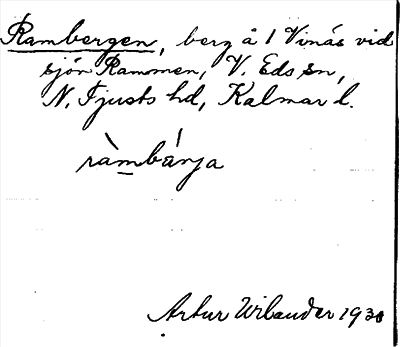 Rambergen, berg å 1 Vinäs vid
sjön Rammen, V. Eds sn,
N. Tjusts hd, Kalmar l.
ràmbárja
Artur Wilander 1930